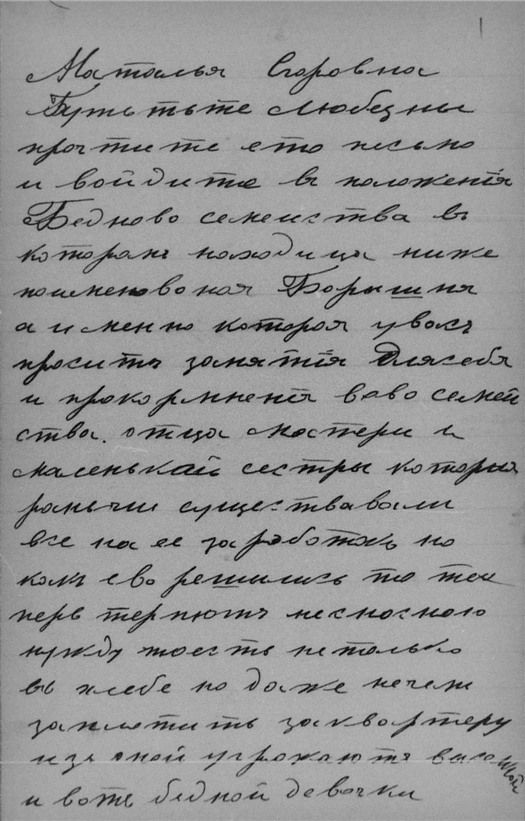 1
Маталья Егоровна
Будьтьте любезны
прочтите ето письмо
и войдите въ положенія
Бедново семейства въ
которамъ находица ниже
поименованая Барышня
а именно которая увасъ
проситъ занятія для себя
и прокормленія вево семей
ства. отца матери и
маленькай сестры которыя
раньши существавали
все на ее заработкъ но
какъ ево решились то те
перь терпютъ несносною
нужду тоесть нетолько
въ хлебе но даже нечем
заплатить заквартеру
изъ оной угрожаютъ
и вотъ бедной девочки